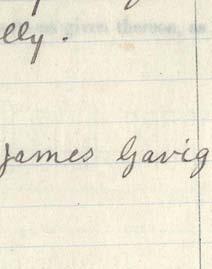 lly.
James Gavig